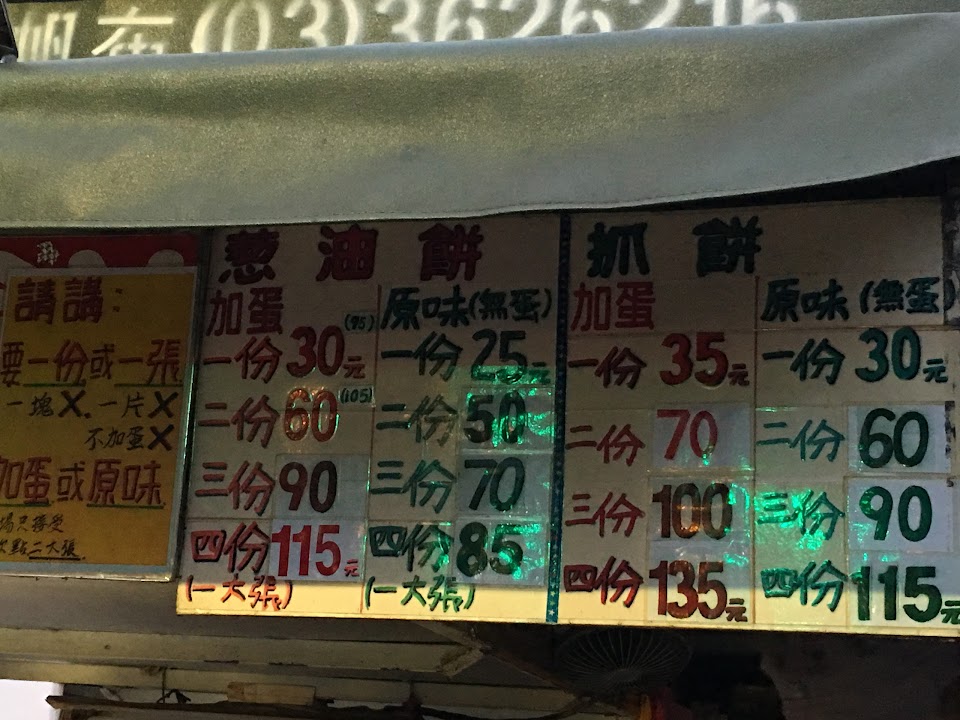 帆布 (03)3626216
請講:
要一份或一張
一塊X.一片X
不加蛋X
加蛋或原味
蔥油餅
加蛋
(95)
一份30元
(105)
二份60
三份90
四份115元
(一大張)
原味(無蛋)
一份25元
二份50
三份70
四份85
(一大張)
抓餅
加蛋
一份35元
二份70
三份100
四份135元
原味(無蛋)
一份30元
二份60
三份90
四份115元